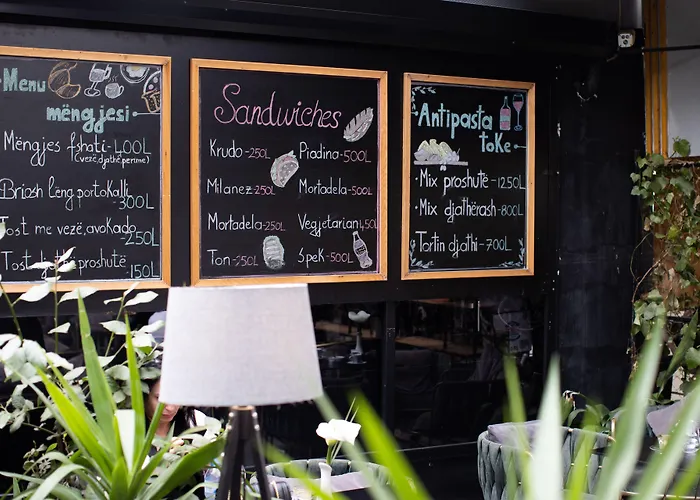 Menu
mëngjesi
Mëngjes fshati-400L
(vezë,djathë,perime)
Briosh lëng portokalli
-300L
Tost me vezë,avokado
-250L
Tost djathë proshutë-150L
Sandwiches
Krudo-250L Piadina-500L
Milanez-250L Mortadela-500L
Mortadela-250L Vegjetarian 450L
Ton-250L Spek-500L
Antipasta
toke
• Mix proshutë-1250L
• Mix djathërash-800L
• Tortin djathi-700L